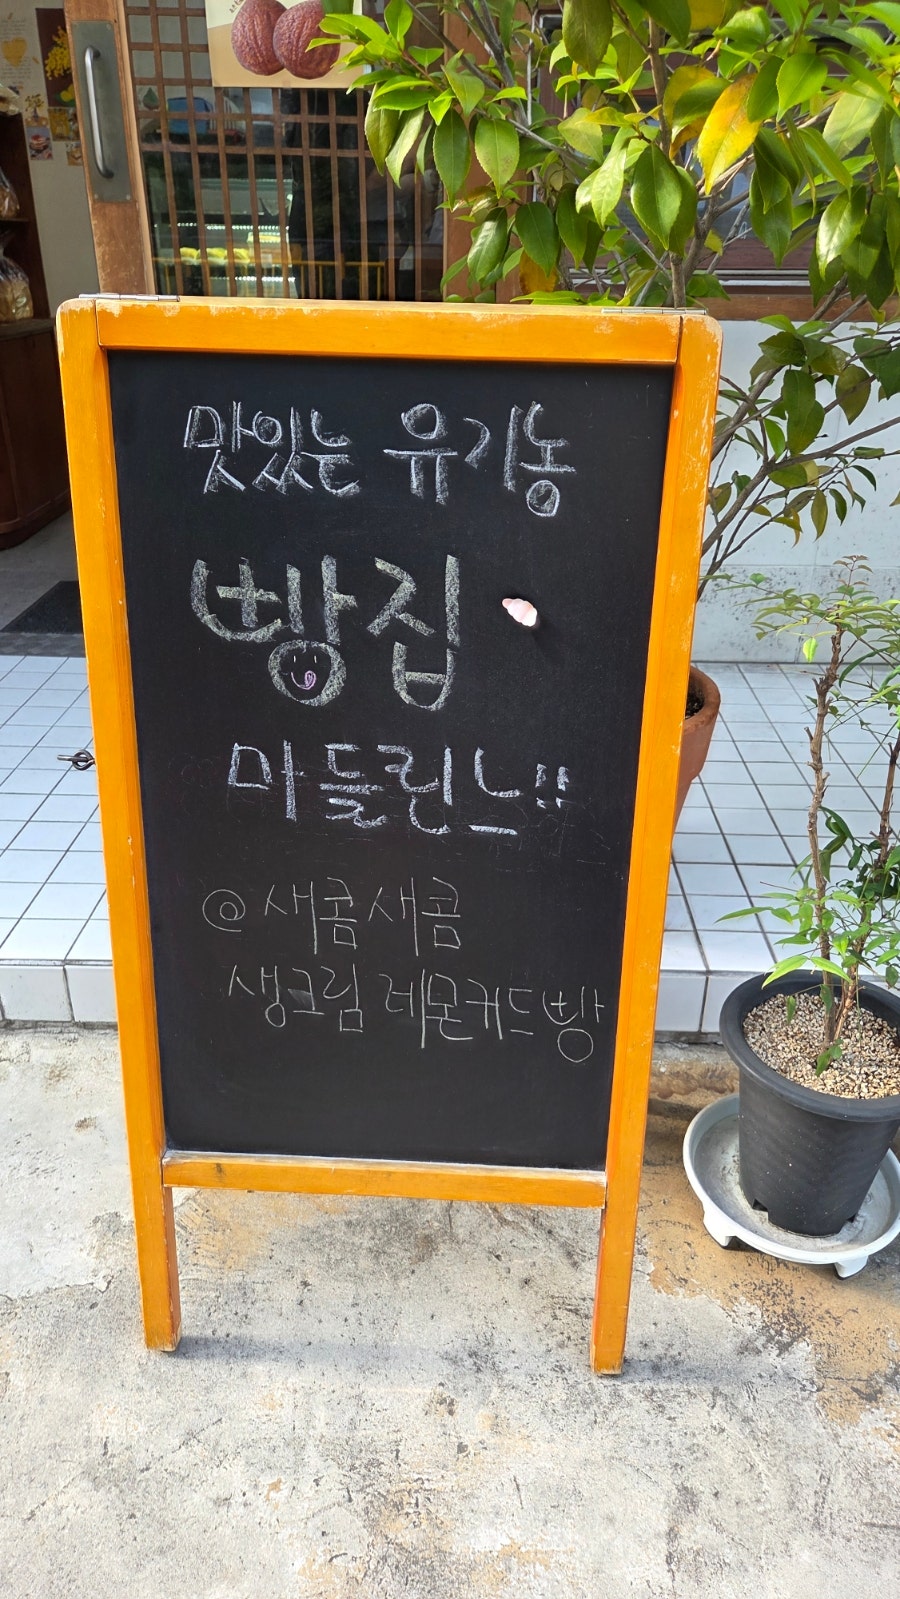 맛있는 유기농
빵집
마들린느!!
@새콤새콤
생크림 레몬커드빵